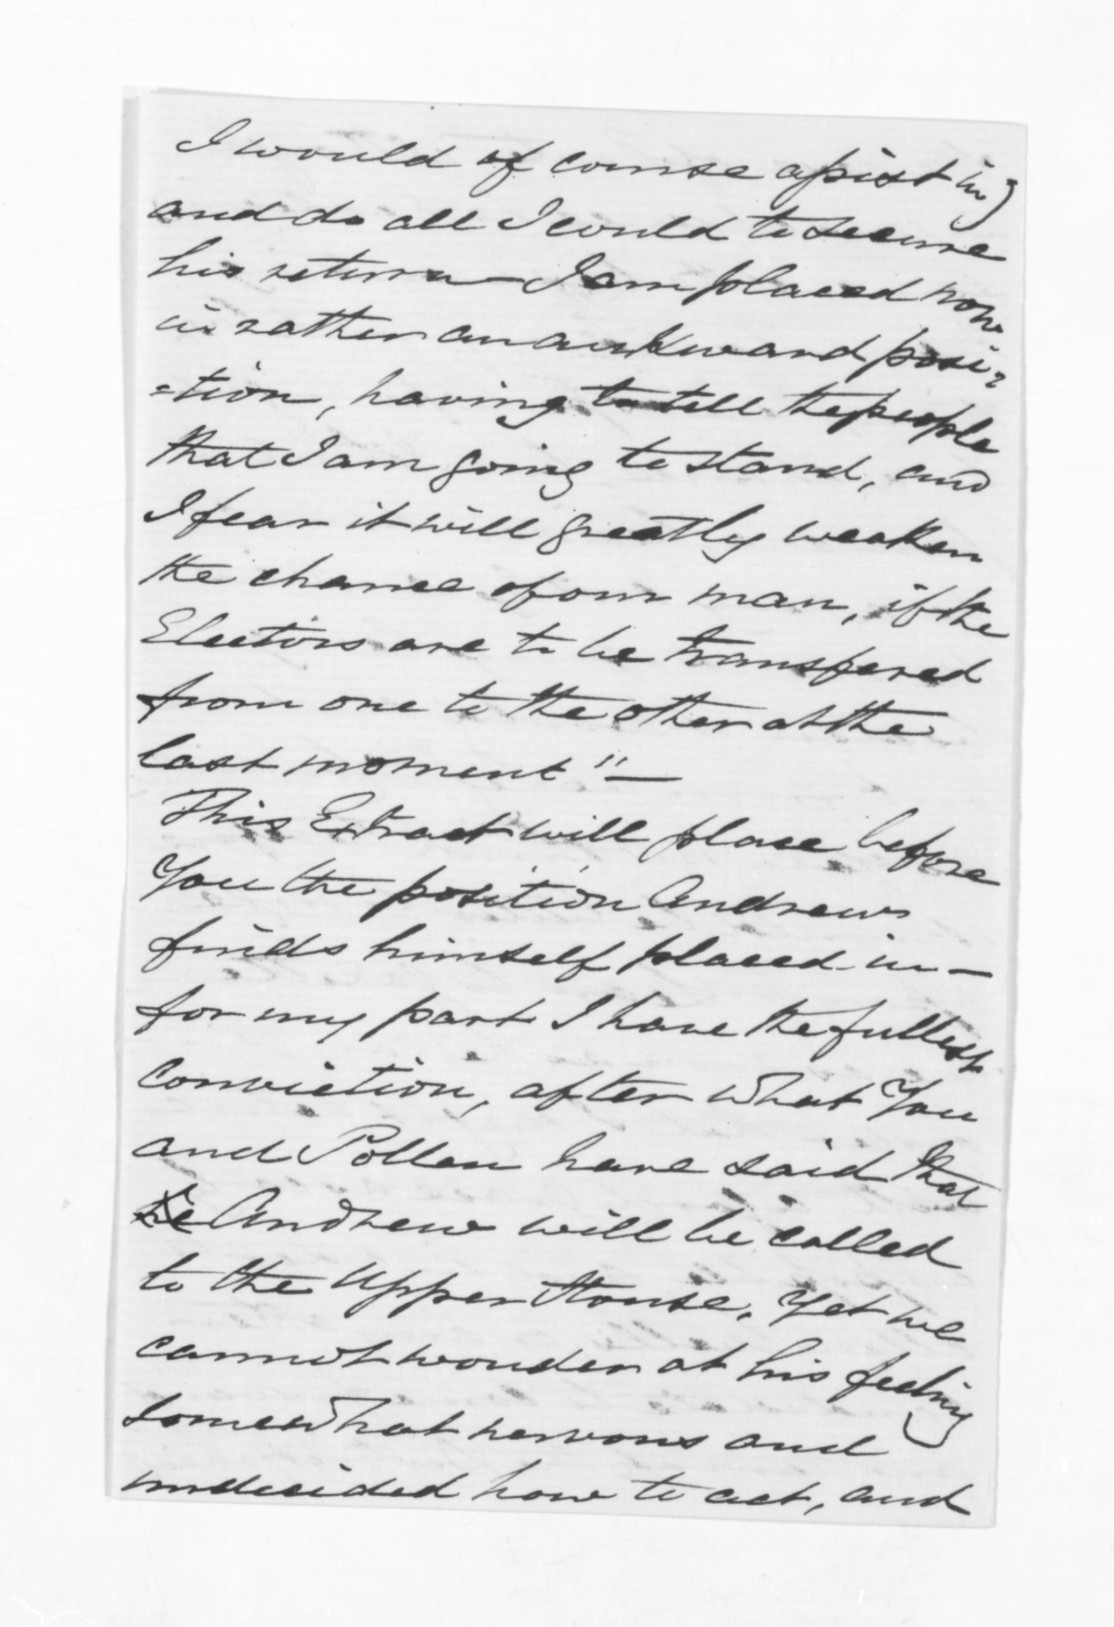 I would of course assist in
and do all I could to secure
his return — I am placed now
in rather an awkward posi=
=tion, having to tell the people
that I am going to stand, and
I fear it will greatly weaken
the chance of our man, if the
Electors are to be transfered
from one to the other at the
last moment" —
This Extract will place before
You the position Andrew
finds himself placed in —
for my part I have the fullest
conviction, after what You
and Pollen have said that
he Andrew will be called
to the Upper House, Yet we
cannot wonder at his feeling
somewhat nervous and
undecided how to act, and